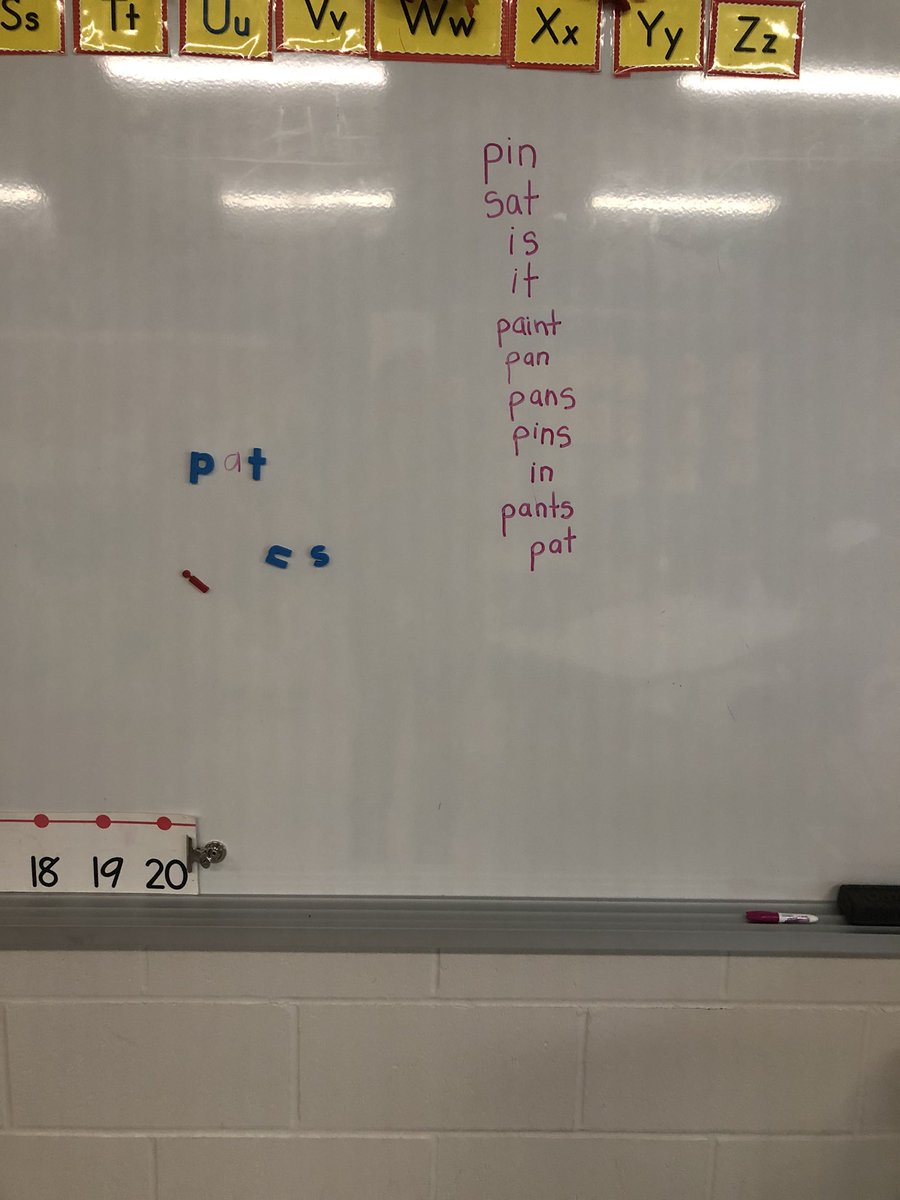 Ss Tt Uu Vv Ww Xx Yy Zz
pin
sat
is
it
paint
pan
pans
pins
in
pants
pat
p a t
n s
i
18 19 20